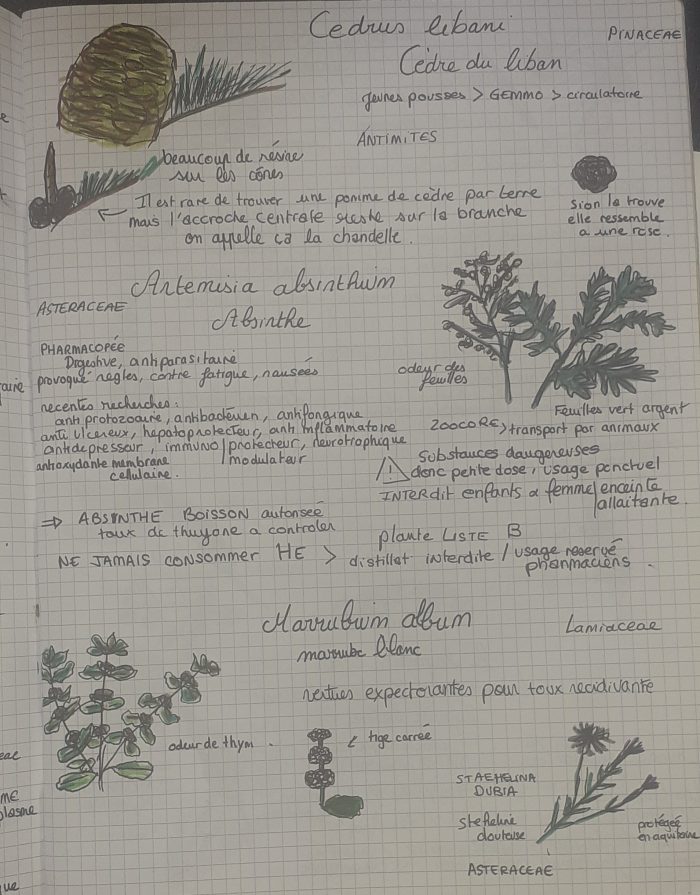 Cedrus libani
PINACEAE
Cèdre du liban
jeunes pousses > GEMMO > circulatoire
ANTIMITES
beaucoup de résine
sur les cônes
Il est rare de trouver une pomme de cèdre par terre
mais l'accroche centrale reste sur la branche
on appelle ça la chandelle.
Si on la trouve
elle ressemble
a une rose.
Artemisia absinthium
ASTERACEAE
Absinthe
PHARMACOPÉE
Digestive, antiparasitaire
provoque règles, contre fatigue, nausées
odeur des
feuilles
Feuilles vert argent
recentes recherches:
anti protozoaire, antibactérien, antifongique
anti ulcereux, hepatoprotecteur, anti inflammatoire
antidepresseur, immuno/protecteur, neurotrophique
antioxydante membrane /modulateur
cellulaire.
ZOOCORE > transport par animaux
Substances dangereuses
donc petite dose, usage ponctuel
INTERDIT enfants & femme/enceinte
allaitante.
⇒ ABSINTHE BOISSON autorisée
taux de thuyone a controler
NE JAMAIS CONSOMMER HE >
plante LISTE B
distillat interdite / usage reservé
pharmaciens.
Marrubium album
Lamiaceae
marrube blanc
vertues expectorantes pour toux recidivante
odeur de thym.
tige carrée
STAEHELINA
DUBIA
stéheline
douteuse
protégée
en aquitaine
ASTERACEAE